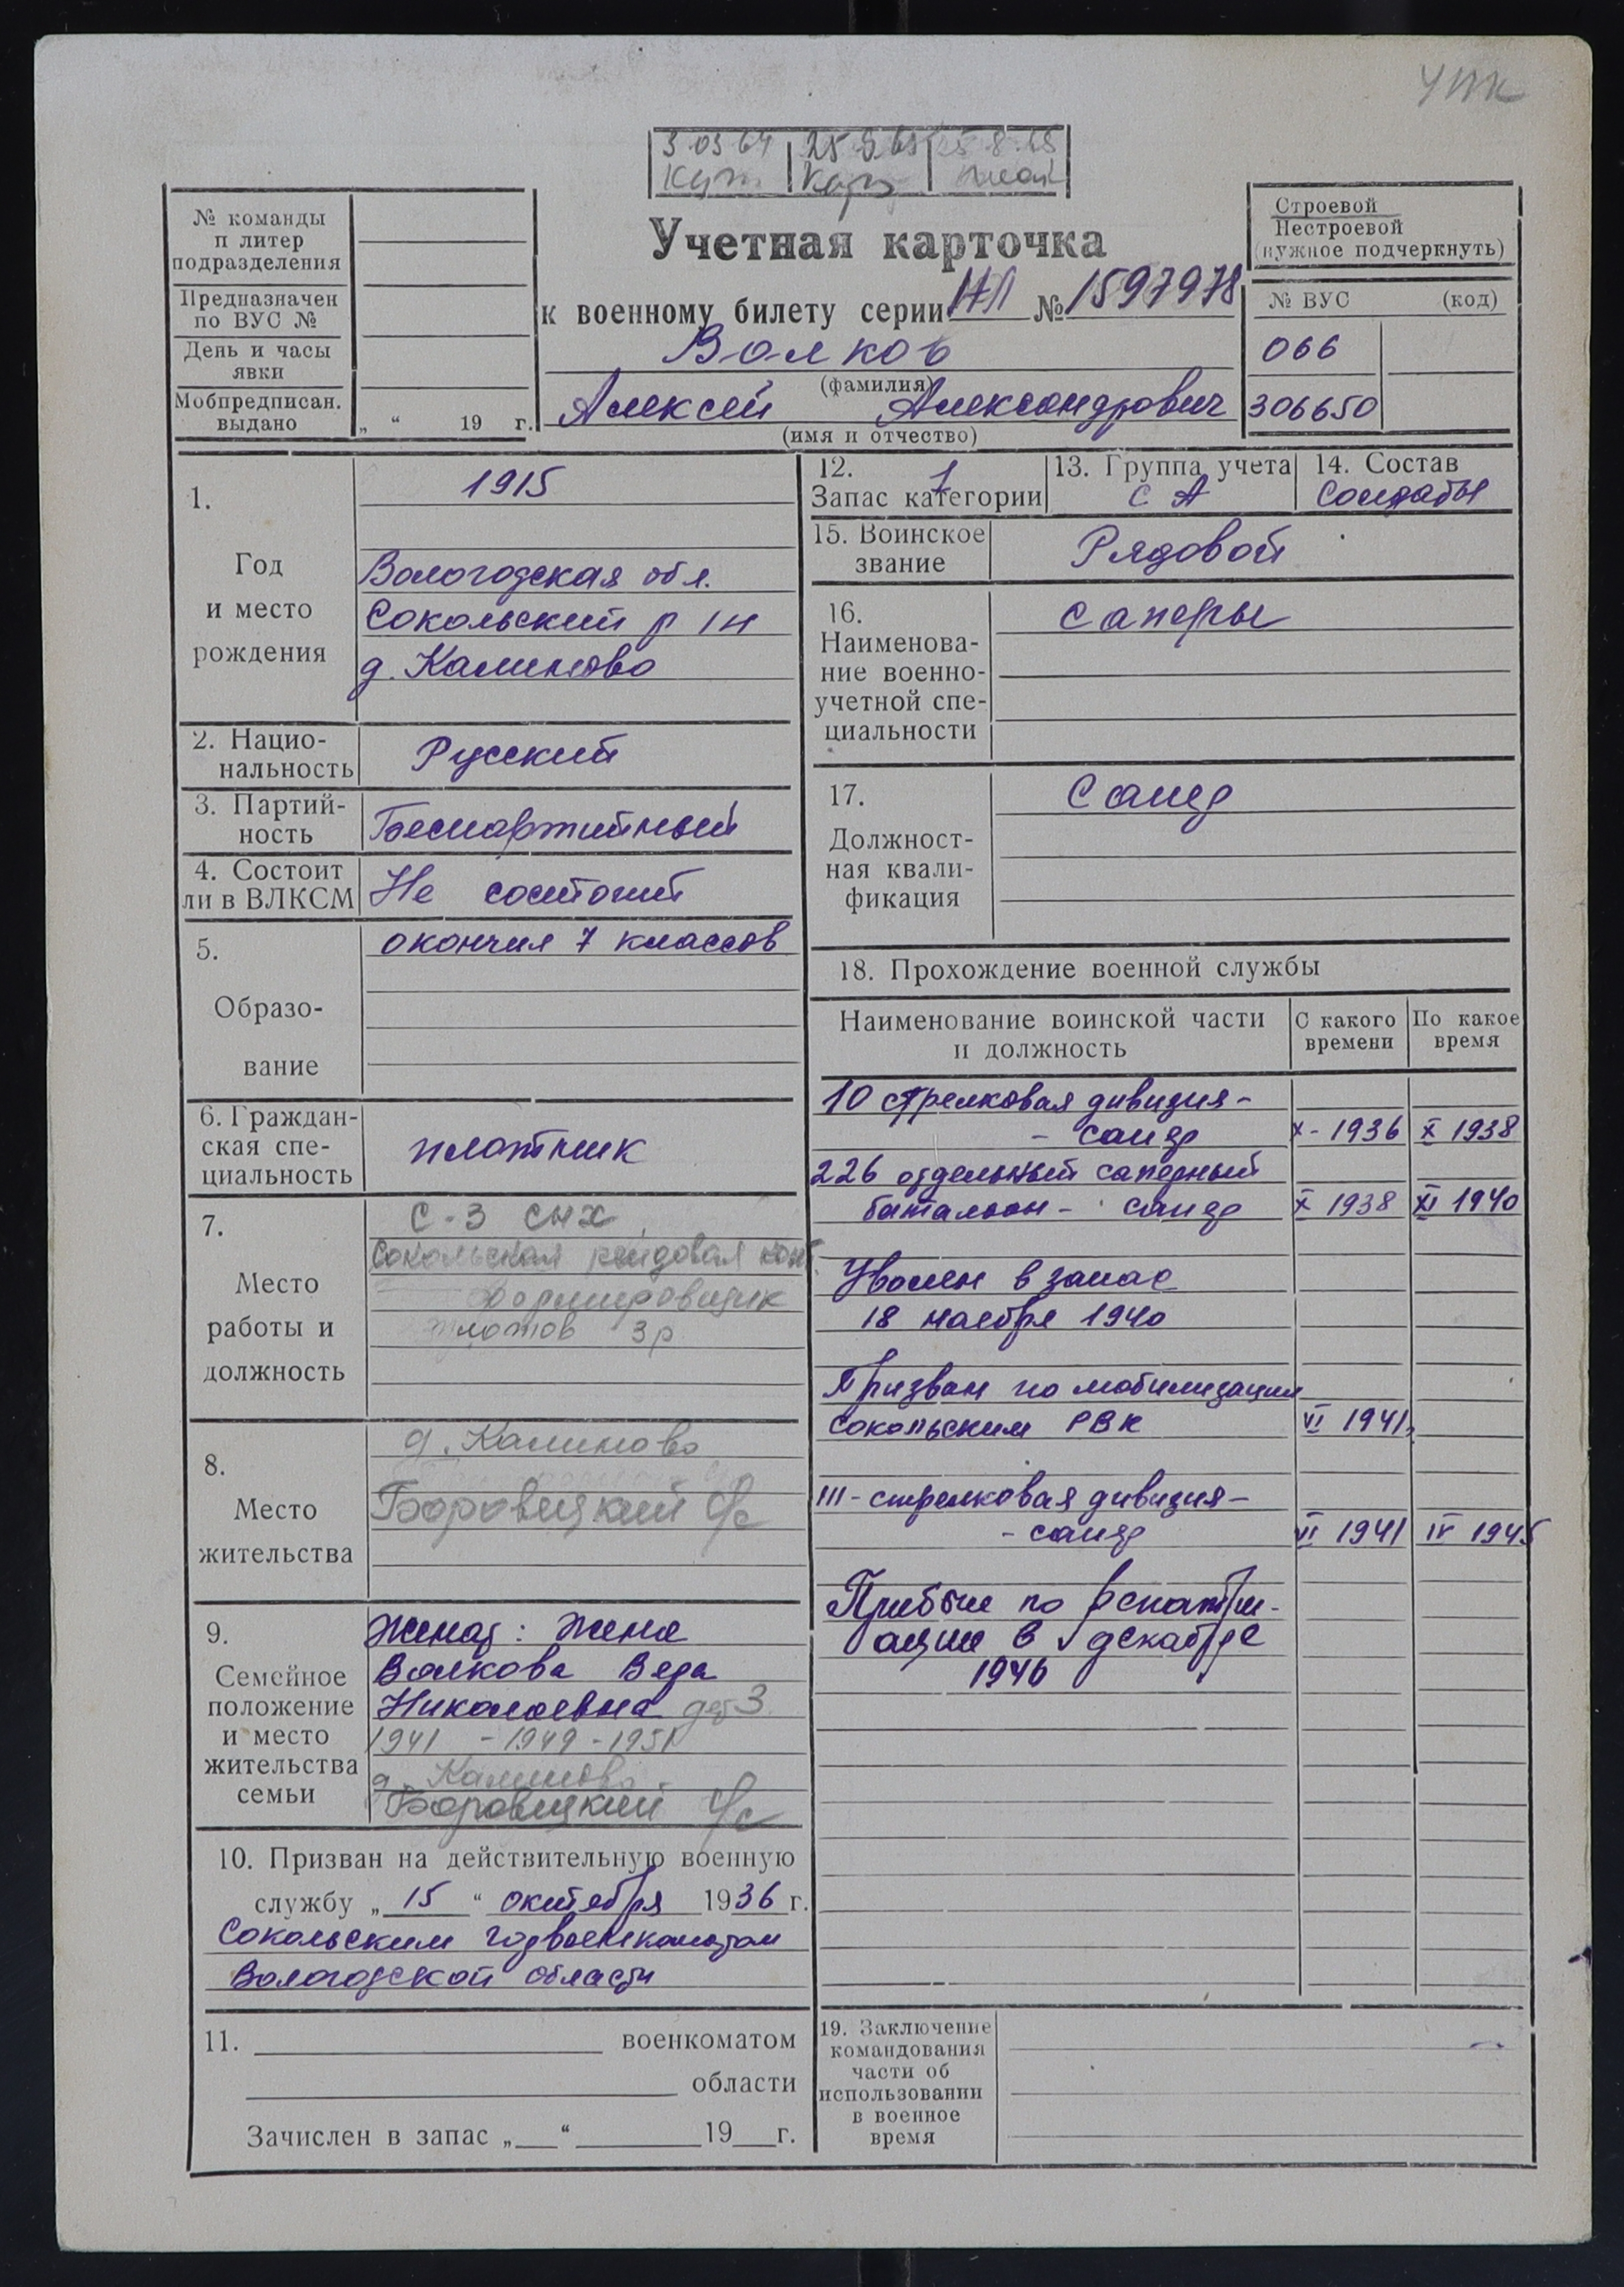 УПК
3.03.64 25.9.65 5.8.68
Учетная карточка
к военному билету серии НЛ № 1597978
Волков
(фамилия)
Алексей Александрович
(имя и отчество)
№ команды
п литер
подразделения
Предназначен
по ВУС №
День и часы
явки
Мобпредписан.
выдано „ “ 19 г.
Строевой
Нестроевой
(нужное подчеркнуть)
№ ВУС (код)
066
306650
1.
Год
и место
рождения
1915
Вологодская обл.
Сокольский р/н
д. Калитово
2. Нацио-
нальность
Русский
3. Партий-
ность
Беспартийный
4. Состоит
ли в ВЛКСМ
Не состоит
5.
Образо-
вание
окончил 7 классов
6. Граждан-
ская спе-
циальность
плотник
7.
Место
работы и
должность
С-З СНХ
Сокольская рейдовая конт
Формировщик
плотов 3р
8.
Место
жительства
д. Калиново
Боровецкий с/с
9.
Семейное
положение
и место
жительства
семьи
Женат: жена
Волкова Вера
Николаевна дет 3
1941 - 1949 - 1951
д. Калиново
Боровецкий с/с
10. Призван на действительную военную
службу „ 15 “ октября 1936 г.
Сокольским горвоенкоматом
Вологодской области
11. военкоматом
области
Зачислен в запас „ “ 19 г.
12. 1
Запас категории
13. Группа учета
СА
14. Состав
Солдаты
15. Воинское
звание
Рядовой
16.
Наименова-
ние военно-
учетной спе-
циальности
саперы
17.
Должност-
ная квали-
фикация
Сапер
18. Прохождение военной службы
Наименование воинской части
и должность
С какого
времени
По какое
время
10 стрелковая дивизия -
- сапер X - 1936 X 1938
226 отдельный саперный
батальон - сапер X 1938 XI 1940
Уволен в запас
18 ноября 1940
Призван по мобилизации
Сокольским РВК VI 1941г
111 - стрелковая дивизия -
- сапер VI 1941 IV 1945
Прибыл по репатри-
ации в декабре
1946
19. Заключение
командования
части об
использовании
в военное
время